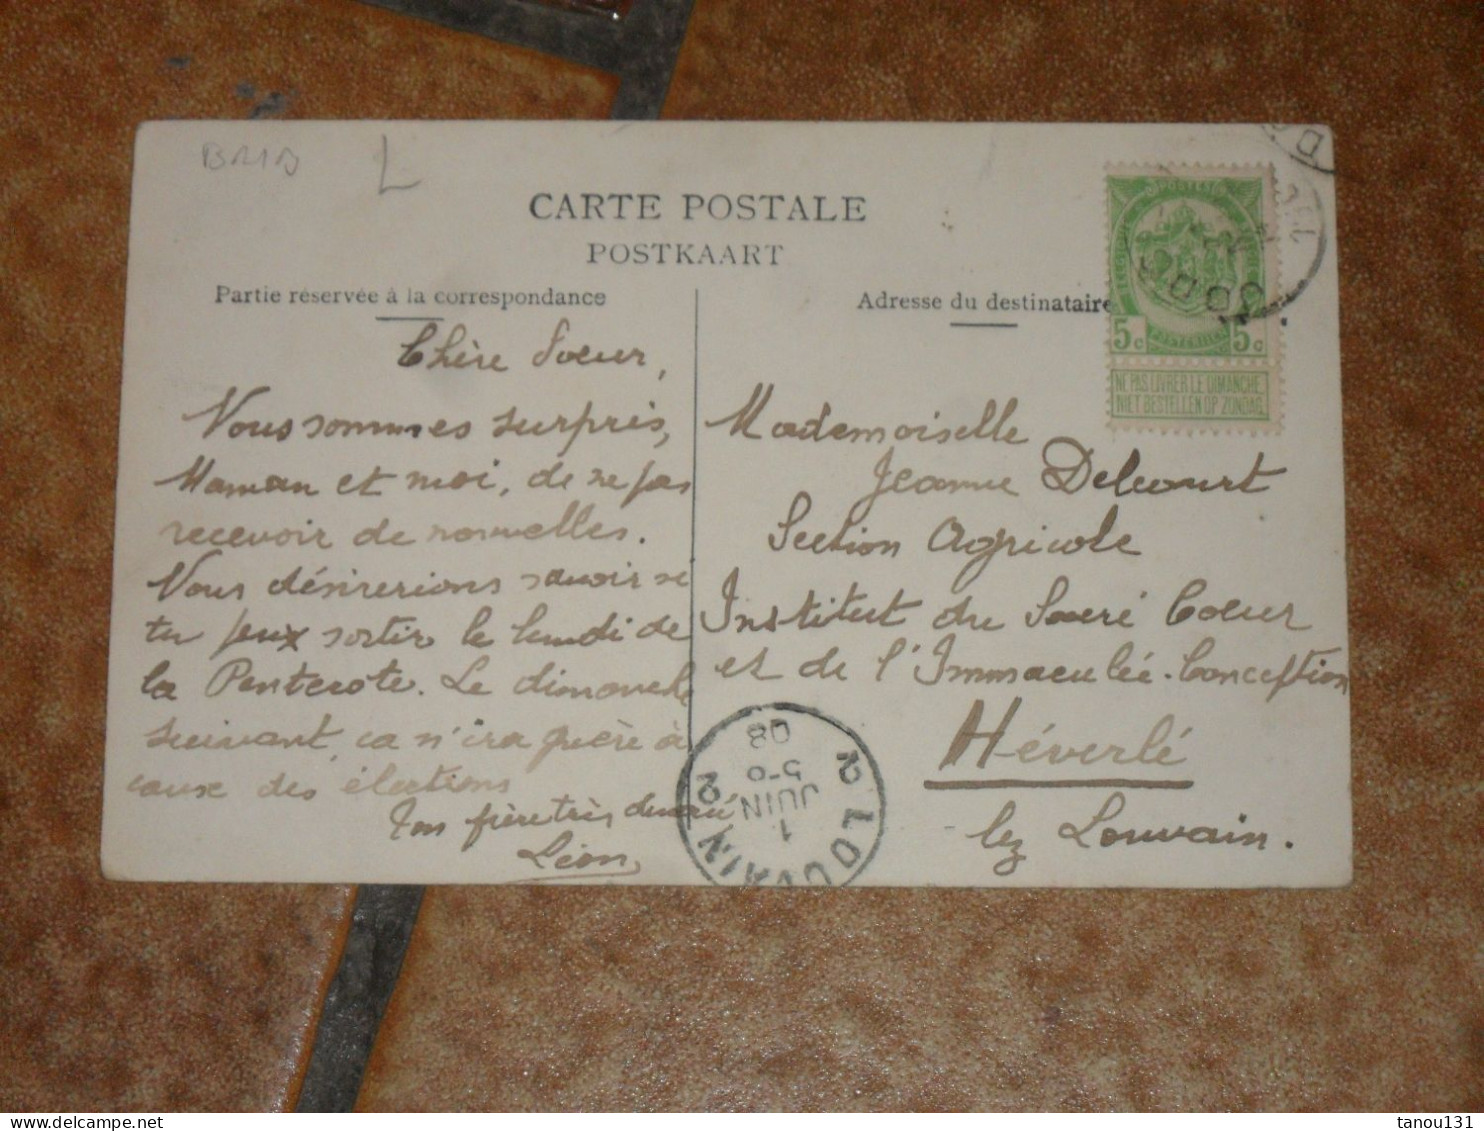 BRIB
L
CARTE POSTALE
POSTKAART
Partie réservée à la correspondance
Chère Soeur,
Nous sommes surpris,
Maman et moi, de ne pas
recevoir de nouvelles.
Nous désirerions savoir si
tu peux sortir le lundi de
la Pentecote. Le dimanche
suivant ça n'ira guère à
cause des élections
Ton frère très dévoué
Léon
Adresse du destinataire
POSTES
5c 5c
POSTERIJEN
NE PAS LIVRER LE DIMANCHE
NIET BESTELLEN OP ZONDAG
Mademoiselle
Jeanne Delcourt
Section Agricole
Institut du Sacré Coeur
et de l'Immaculée-Conception
Héverlé
lez Louvain.
2 LOUVAIN 2
1
JUIN
5-6
08
tanou131